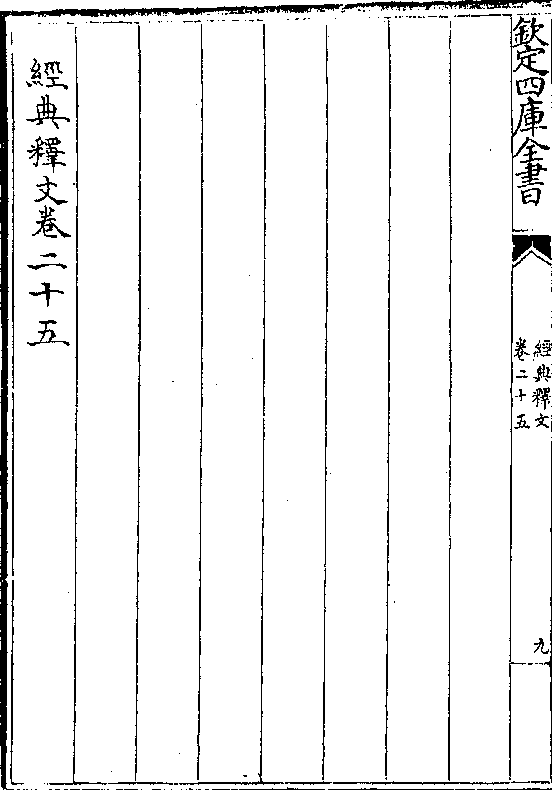 欽定四庫全書
經典釋文
卷二十五
九
經典釋文卷二十五